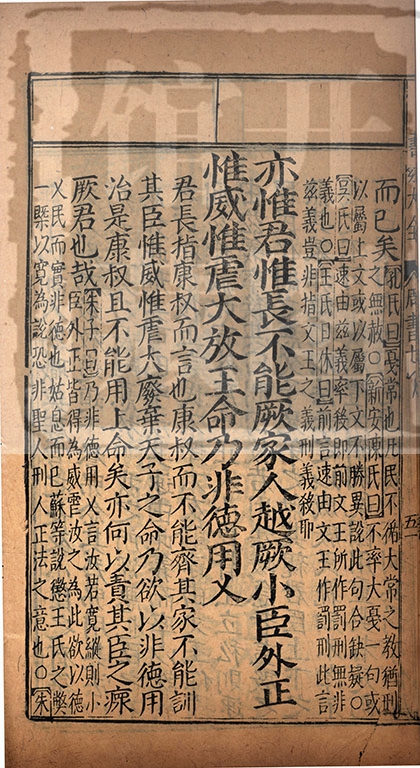 而已矣孔氏曰戞常也凡民不循大常之教猶刑
之無赦○新安陳氏曰不率大戞一句或
以屬上文或以屬下文不勝異説此句合缺疑○
吳氏曰速由兹義率後即前文王所作罰刑無非
義也○王氏曰休曰前言速由文王作罰刑此言
兹義豈非指文王之義刑義殺耶
亦惟君惟長不能厥家人越厥小臣外正
惟威惟虐大放王命乃非德用乂
君長指康叔而言也康叔而不能齊其家不能訓
其臣惟威惟虐大廢棄天子之命乃欲以非德用
治是康叔且不能用上命矣亦何以責其臣之瘝
厥君也哉朱子曰乃非德用乂言汝若寬縱則小
臣外正皆得為威虐汝之為此欲以德
乂民而實非德也姑息而已蘇等説懲王氏之弊
一槩以寬為説恐非聖人刑人正法之意也○朱